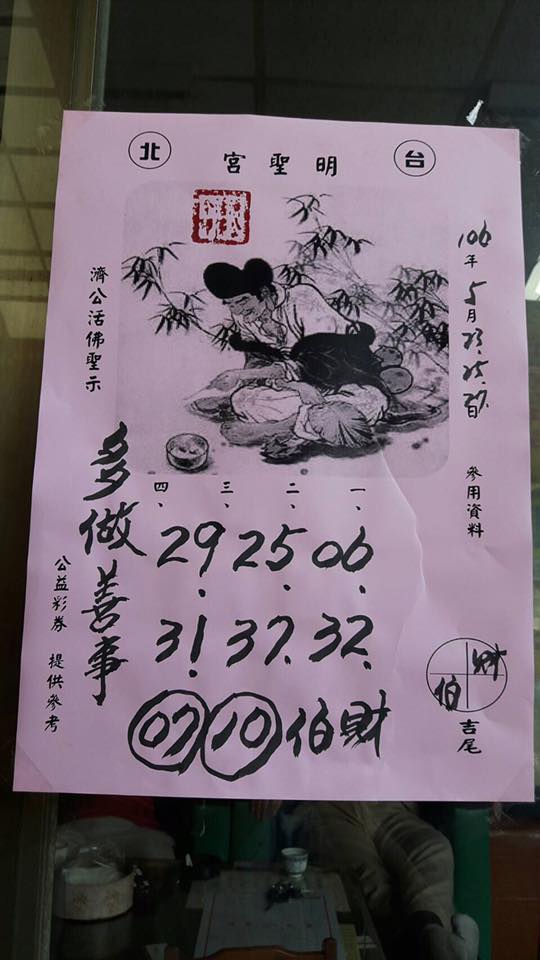 台北
明聖宮
106年5月23.25.27日 參用資料
濟公活佛聖示
一、 二、 三、 四、
06. 25. 29.
32. 37. 31.
財伯 10 07
多做善事
財
伯
吉尾
公益彩券 提供參考